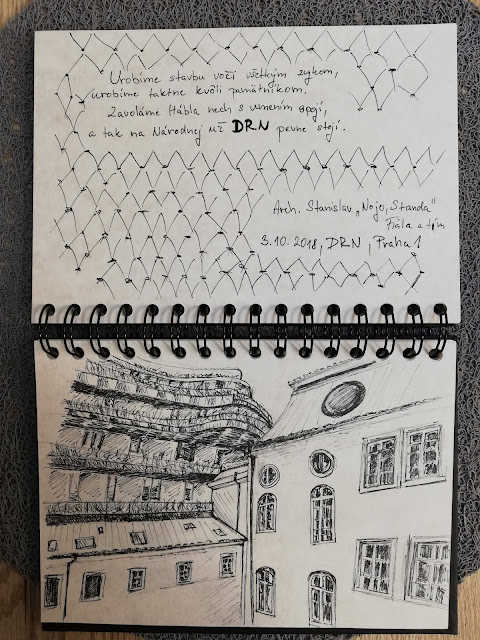 Urobíme stavbu voči všetkým zykom,
urobíme taktne kvôli pamätníkom.
Zavoláme Hábla nech s umením spojí,
a tak na Národnej už DRN pevne stojí.
Arch. Stanislav "Nojo, Standa"
Fiala a tím
3.10.2018, DRN, Praha 1